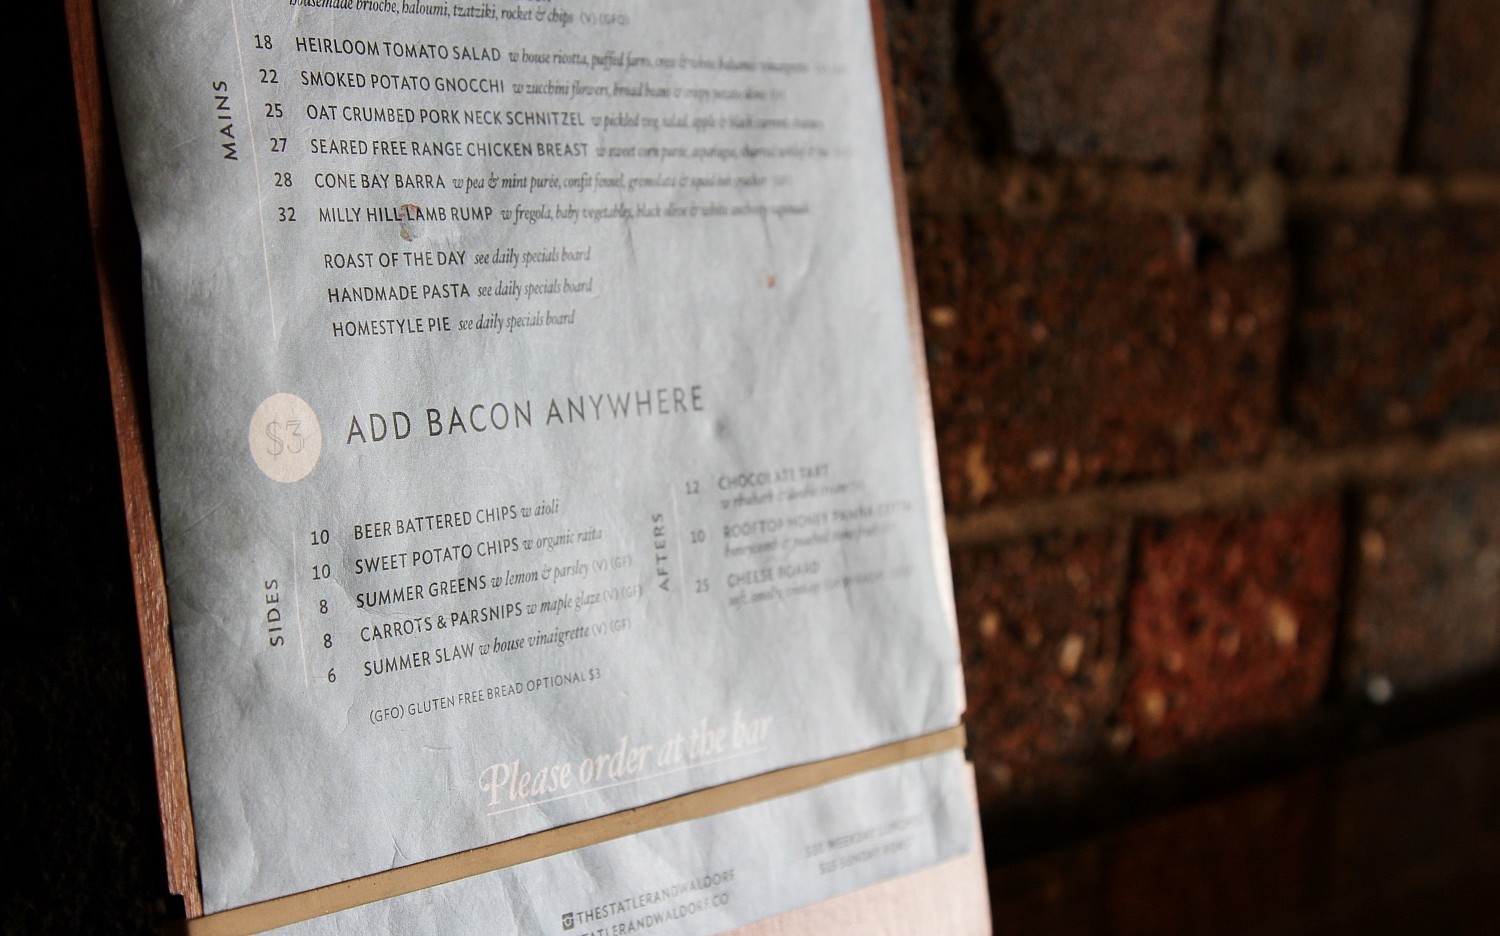 housemade brioche, haloumi, tzatziki, rocket & chips (V) (GFO)
MAINS
18 HEIRLOOM TOMATO SALAD w house ricotta, puffed farro, cress & white balsamic vinaigrette
22 SMOKED POTATO GNOCCHI w zucchini flowers, broad beans & crispy potato skins
25 OAT CRUMBED PORK NECK SCHNITZEL w pickled veg salad, apple & black currant chutney
27 SEARED FREE RANGE CHICKEN BREAST w sweet corn purée, asparagus, charred
28 CONE BAY BARRA w pea & mint purée, confit fennel, gremolata & squid ink cracker
32 MILLY HILL LAMB RUMP w fregola, baby vegetables, black olive & white anchovy
ROAST OF THE DAY see daily specials board
HANDMADE PASTA see daily specials board
HOMESTYLE PIE see daily specials board
$3 ADD BACON ANYWHERE
SIDES
10 BEER BATTERED CHIPS w aioli
10 SWEET POTATO CHIPS w organic raita
8 SUMMER GREENS w lemon & parsley (V) (GF)
8 CARROTS & PARSNIPS w maple glaze (V) (GF)
6 SUMMER SLAW w house vinaigrette (V) (GF)
(GFO) GLUTEN FREE BREAD OPTIONAL $3
AFTERS
12 CHOCOLATE TART
w rhubarb & double cream
10 ROOFTOP HONEY PANNA COTTA
honeycomb & poached
25 CHEESE BOARD
Please order at the bar
THESTATLERANDWALDORF
TATLERANDWALDORF.CO
$10 WEEKDAY LUNCH
$25 SUNDAY ROAST